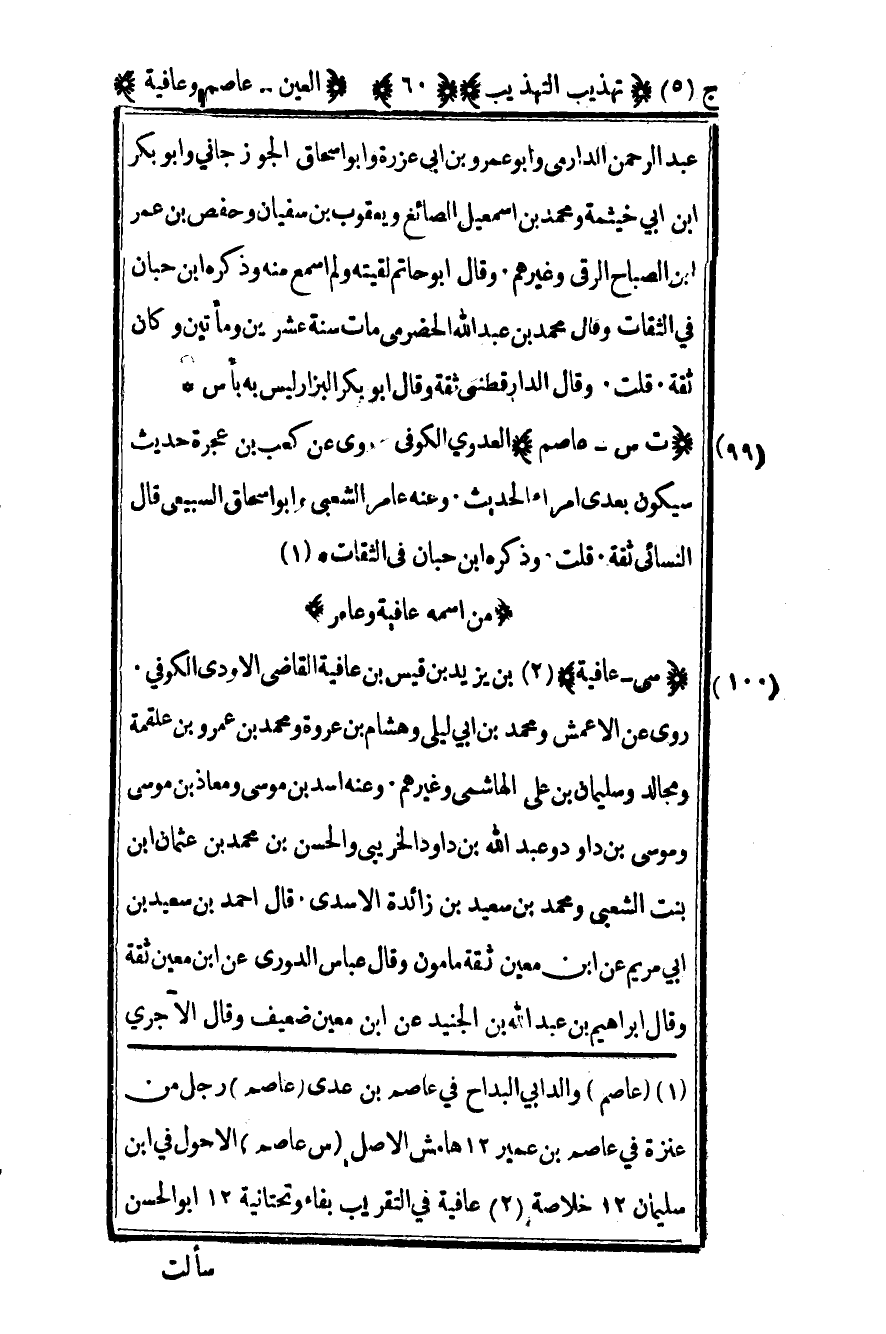 ج (٥) ﴿ تهذيب التهذيب ﴾ ﴿ ٦٠ ﴾ ﴿ العين .. عاصم وعافية ﴾
عبد الرحمن الدارمى وابو عمرو بن ابى عزرة وابو اسحاق الجوزجاني وابو بكر
ابن ابي خيثمة ومحمد بن اسمعيل الصائغ ويعقوب بن سفيان وحفص بن عمر
ابن الصباح الرقى وغيرهم . وقال ابو حاتم لقيته ولم اسمع منه وذكره ابن حبان
في الثقات وقال محمد بن عبد الله الحضرمى مات سنة عشرين ومأتين وكان
ثقة . قلت . وقال الدارقطنى ثقة وقال ابو بكر البزار ليس به بأس *
(٩٩) ﴿ ت س _ عاصم ﴾ العدوي الكوفى روى عن كعب بن عجرة حديث
سيكون بعدى امراء الحديث . وعنه عامر الشعبى وابو اسحاق السبيعى قال
النسائى ثقة . قلت . وذكره ابن حبان فى الثقات * (١)
﴿ من اسمه عافية وعامر ﴾
(١٠٠) ﴿ سى _ عافية ﴾ (٢) بن يزيد بن قيس بن عافية القاضى الاودى الكوفي .
روى عن الاعمش ومحمد بن ابي ليلى وهشام بن عروة ومحمد بن عمرو بن علقمة
ومجالد وسليمان بن على الهاشمى وغيرهم . وعنه اسد بن موسى ومعاذ بن موسى
وموسى بن داود وعبد الله بن داود الخريبى والحسن بن محمد بن عثمان ابن
بنت الشعبى ومحمد بن سعيد بن زائدة الاسدى . قال احمد بن سعيد بن
ابي مريم عن ابن معين ثقة مامون وقال عباس الدورى عن ابن معين ثقة
وقال ابراهيم بن عبد الله بن الجنيد عن ابن معين ضعيف وقال الآجري
(١) (عاصم) والد ابي البداح في عاصم بن عدى (عاصم) رجل من
عنزة في عاصم بن عمير ١٢ هامش الاصل (س عاصم) الاحول في ابن
سليمان ١٢ خلاصة (٢) عافية في التقريب بفاء وتحتانية ١٢ ابو الحسن
سألت